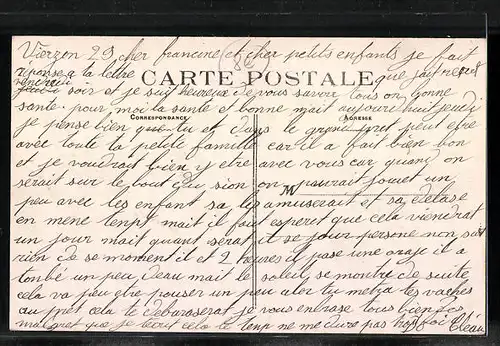 Vierzon 29 cher francine et cher petits enfants je fait
reponse a la lettre que jay reçus
CARTE POSTALE
vendredi soir et je suis heureuse de vous savoir tous en bonne
CORRESPONDANCE
ADRESSE
sante. pour moi la sante et bonne mait aujourd huit jeudi
je pense bien que tu et dans le grand pret peut etre
avec toute la petite famille car il a fait bien bon
et je voudrait bien y etre avec vous car quand on
serait sur le bout du sion on pourrait jouer un
M
peu avec les enfant sa les amuserait et sa delase
en mene tenpt mait il faut esperer que cela viendrat
un jour mait quant serat il se jour persone non sait
rien de se moment il et 2 heures il pase une oraje il a
tonbé un peu deau mait le soleil se montre de suite
cela va peu etre pouser un peu aler tu metra tes vaches
au pret cela te debaraserat je vous enbrase tous bien fors
malgret que je le tenp ne me dure pas trop Cléau